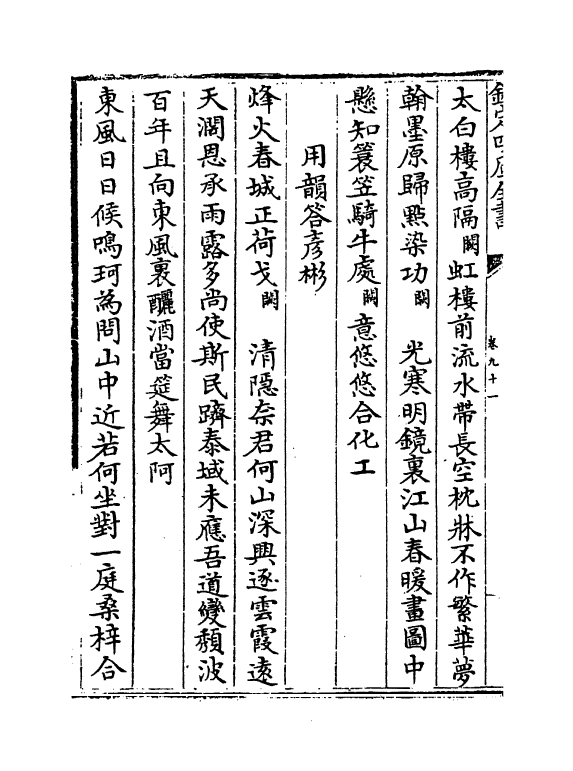 欽定四庫全書
卷九十一
太白樓高隔闕虹樓前流水帶長空枕牀不作繁華夢
翰墨原歸㸃染功闕 光寒明鏡裏江山春暖畫圖中
懸知簑笠騎牛處闕意悠悠合化工
用韻答彦彬
烽火春城正荷戈闕 清隱奈君何山深興逐雲霞遠
天濶恩承雨露多尚使斯民躋泰域未應吾道變頽波
百年且向東風裏釃酒當筵舞太阿
東風日日候鳴珂為問山中近若何坐對一庭桑梓合